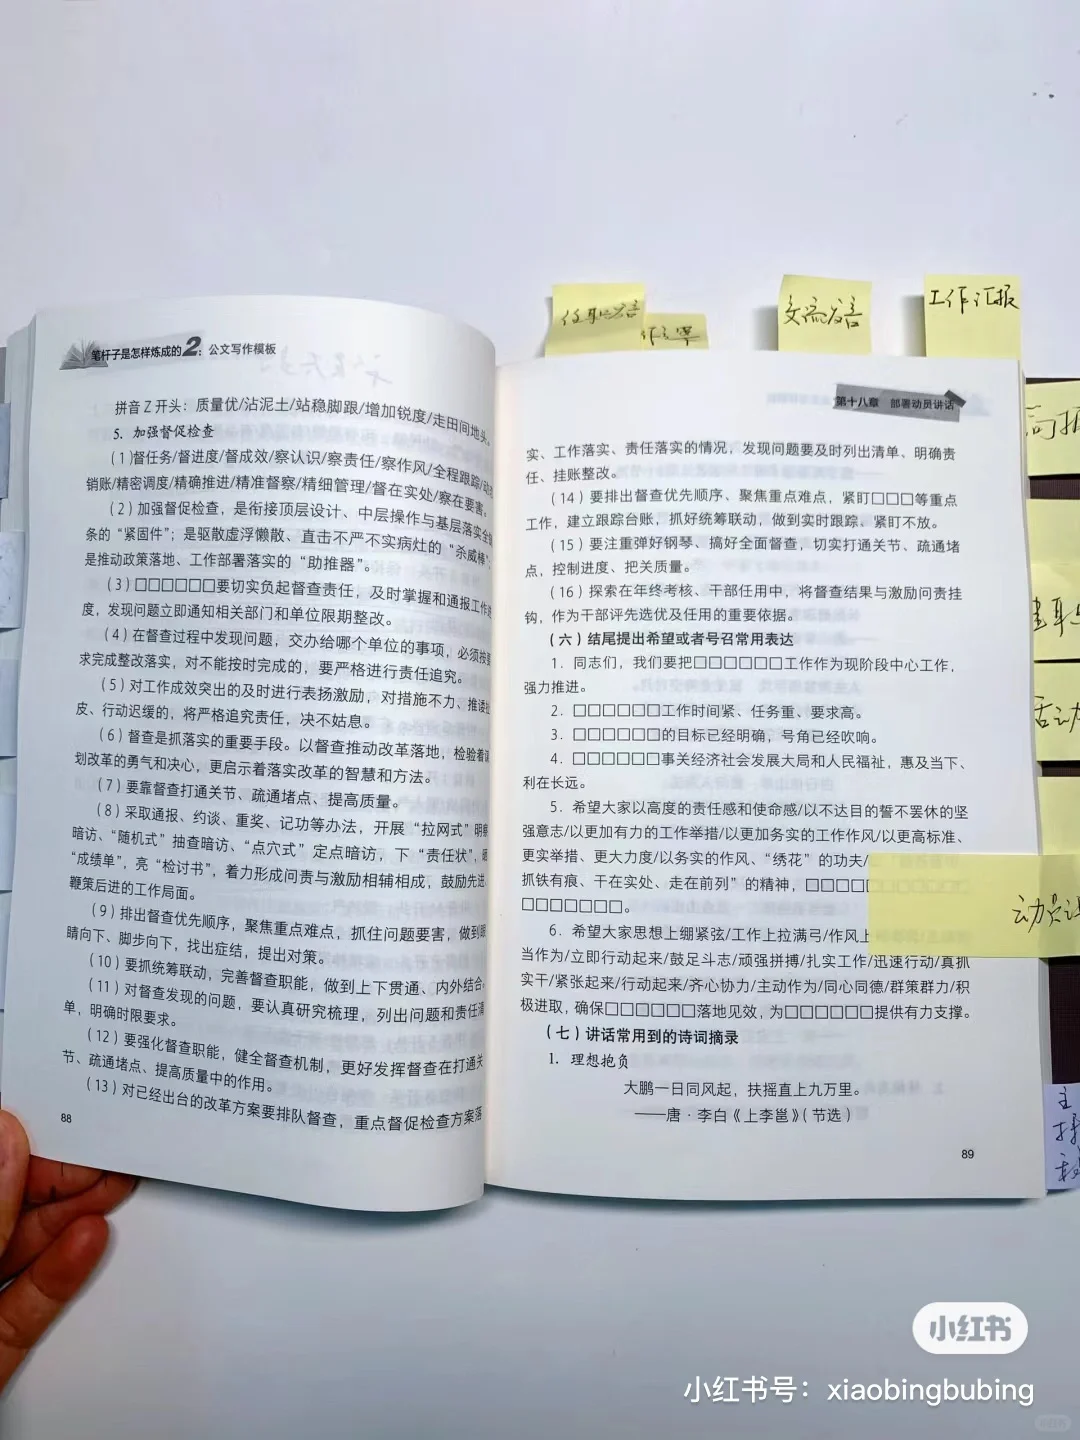 笔杆子是怎样炼成的2：公文写作模板
拼音Z开头：质量优/沾泥土/站稳脚跟/增加锐度/走田间地头。
5. 加强督促检查
(1)督任务/督进度/督成效/察认识/察责任/察作风/全程跟踪/动态
销账/精密调度/精确推进/精准督察/精细管理/督在实处/察在要害。
(2)加强督促检查，是衔接顶层设计、中层操作与基层落实全链
条的“紧固件”；是驱散虚浮懒散、直击不严不实病灶的“杀威棒”；
是推动政策落地、工作部署落实的“助推器”。
(3)□□□□□□要切实负起督查责任，及时掌握和通报工作进
度，发现问题立即通知相关部门和单位限期整改。
(4)在督查过程中发现问题，交办给哪个单位的事项，必须按要
求完成整改落实，对不能按时完成的，要严格进行责任追究。
(5)对工作成效突出的及时进行表扬激励，对措施不力、推诿扯
皮、行动迟缓的，将严格追究责任，决不姑息。
(6)督查是抓落实的重要手段。以督查推动改革落地，检验着谋
划改革的勇气和决心，更启示着落实改革的智慧和方法。
(7)要靠督查打通关节、疏通堵点、提高质量。
(8)采取通报、约谈、重奖、记功等办法，开展“拉网式”明察
暗访、“随机式”抽查暗访、“点穴式”定点暗访，下“责任状”，晒
“成绩单”，亮“检讨书”，着力形成问责与激励相辅相成，鼓励先进、
鞭策后进的工作局面。
(9)排出督查优先顺序，聚焦重点难点，抓住问题要害，做到眼
睛向下、脚步向下，找出症结，提出对策。
(10)要抓统筹联动，完善督查职能，做到上下贯通、内外结合。
(11)对督查发现的问题，要认真研究梳理，列出问题和责任清
单，明确时限要求。
(12)要强化督查职能，健全督查机制，更好发挥督查在打通关
节、疏通堵点、提高质量中的作用。
(13)对已经出台的改革方案要排队督查，重点督促检查方案落
88
任职发言
交流发言
工作汇报
第十八章 部署动员讲话
实、工作落实、责任落实的情况，发现问题要及时列出清单、明确责
任、挂账整改。
(14)要排出督查优先顺序、聚焦重点难点，紧盯□□□等重点
工作，建立跟踪台账，抓好统筹联动，做到实时跟踪、紧盯不放。
(15)要注重弹好钢琴、搞好全面督查，切实打通关节、疏通堵
点，控制进度、把关质量。
(16)探索在年终考核、干部任用中，将督查结果与激励问责挂
钩，作为干部评先选优及任用的重要依据。
(六)结尾提出希望或者号召常用表达
1. 同志们，我们要把□□□□□□工作作为现阶段中心工作，
强力推进。
2. □□□□□□工作时间紧、任务重、要求高。
3. □□□□□□的目标已经明确，号角已经吹响。
4. □□□□□□事关经济社会发展大局和人民福祉，惠及当下、
利在长远。
5. 希望大家以高度的责任感和使命感/以不达目的誓不罢休的坚
强意志/以更加有力的工作举措/以更加务实的工作作风/以更高标准、
更实举措、更大力度/以务实的作风、“绣花”的功夫/
抓铁有痕、干在实处、走在前列”的精神，□□□□
□□□□□□□。
6. 希望大家思想上绷紧弦/工作上拉满弓/作风上
当作为/立即行动起来/鼓足斗志/顽强拼搏/扎实工作/迅速行动/真抓
实干/紧张起来/行动起来/齐心协力/主动作为/同心同德/群策群力/积
极进取，确保□□□□□□落地见效，为□□□□□□提供有力支撑。
(七)讲话常用到的诗词摘录
1. 理想抱负
大鹏一日同风起，扶摇直上九万里。
——唐·李白《上李邕》(节选)
89
动员
小红书
小红书号：xiaobingbubing